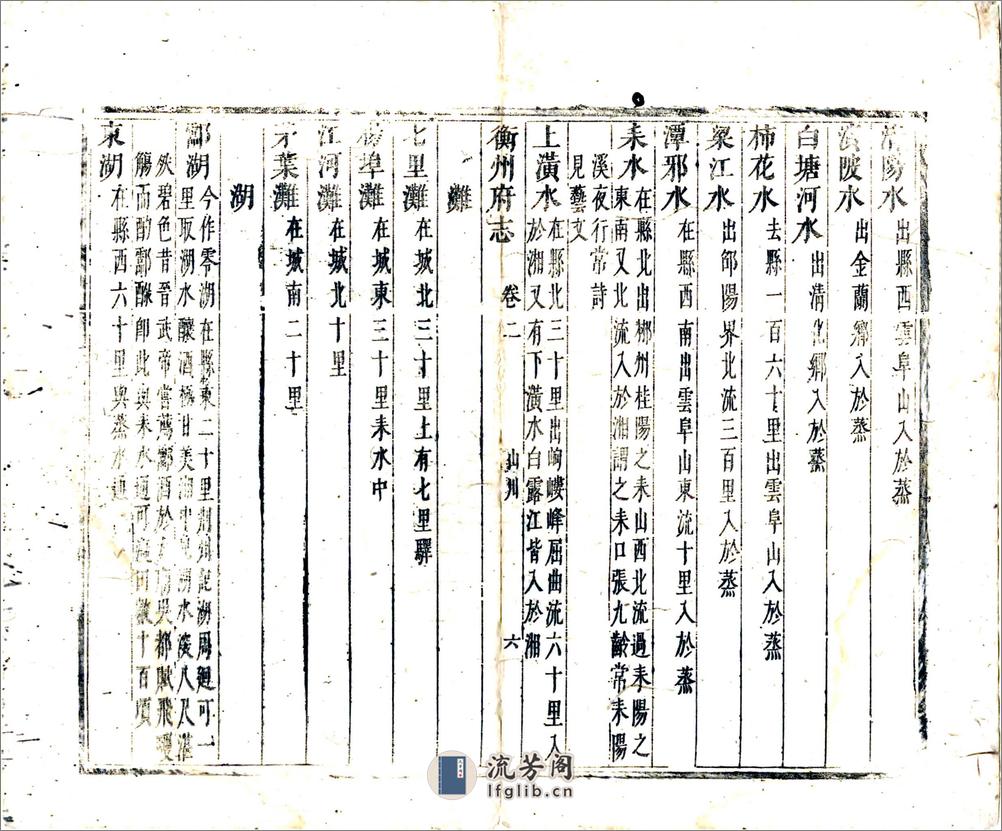 陽水出縣西雲阜山入於蒸
陂水出金蘭鄉入於蒸
白塘河水出清化鄉入於蒸
柿花水去縣一百六十里出雲阜山入於蒸
梁江水出邵陽界北流三百里入於蒸
潭邪水在縣西南出雲阜山東流十里入於蒸
耒水在縣北出郴州桂陽之耒山西北流過耒陽之
東南又北流入於湘謂之耒口張九齡常耒陽
溪夜行常詩
見藝文
上潢水在縣北三十里出岣嶁峰屈曲流六十里入
於湘又有下潢水白露江皆入於湘
衡州府志 卷二 山川 六
灘
七里灘在城北三十里上有七里驛
埠灘在城東三十里耒水中
江河灘在城北十里
茅葉灘在城南二十里
湖
酃湖今作零湖在縣東二十里荊州記湖周廻可一
里取湖水釀酒極甘美湘中記湖水深八尺湛
然碧色昔晉武帝嘗薦酃酒於太廟吳都賦飛
觴而酌酃醁即此與耒水通可溉田數十百頃
東湖在縣西六十里與蒸水通
流芳阁
lfglib.cn